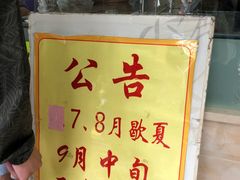 公告
7、8月歇夏
9月中旬